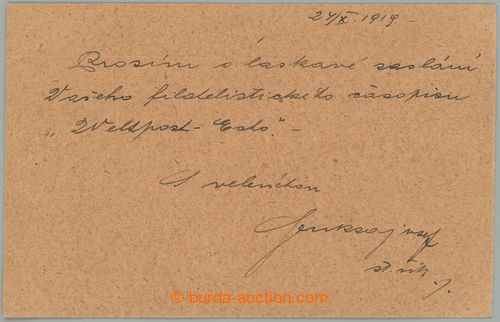 24/X. 1919 -
Prosím o laskavé zaslání
Vašeho filatelistického časopisu
„Weltpost-Echo." -
S veleúctou
st. rik.
burda-auction.com